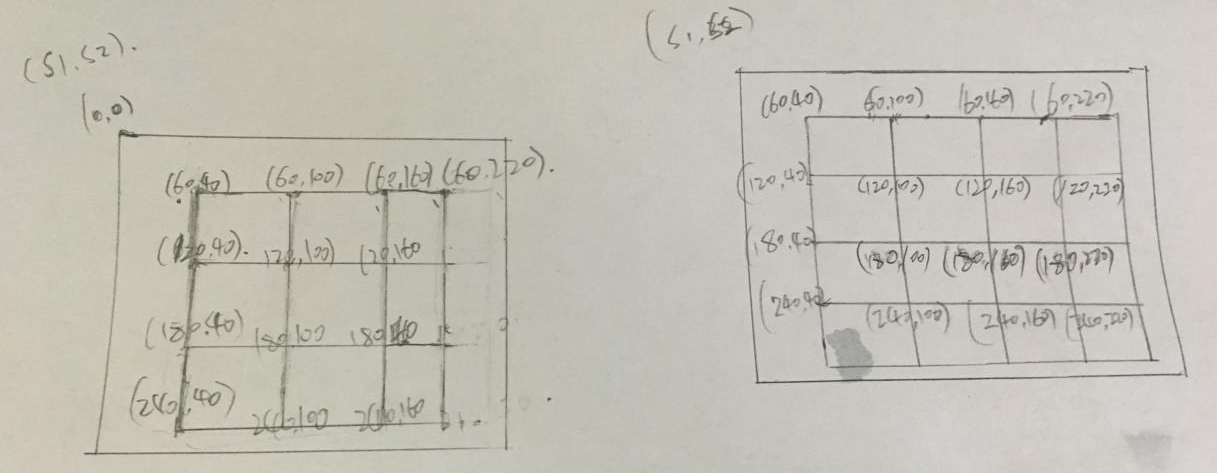 (S1,S2).
(0,0)
(60,40) (60,100) (60,160) (60,220).
(120,40). 120,100) (120,160
(180,40) 180,100 180,160
(240,40) 240,100 240,160
(S1,S2)
(60,40) 60,100) (60,160) (60,220)
(120,40) (120,100) (120,160) (120,220)
(180,40) (180,100) (180,160) (180,220)
(240,40) (240,100) (240,160) (240,220)